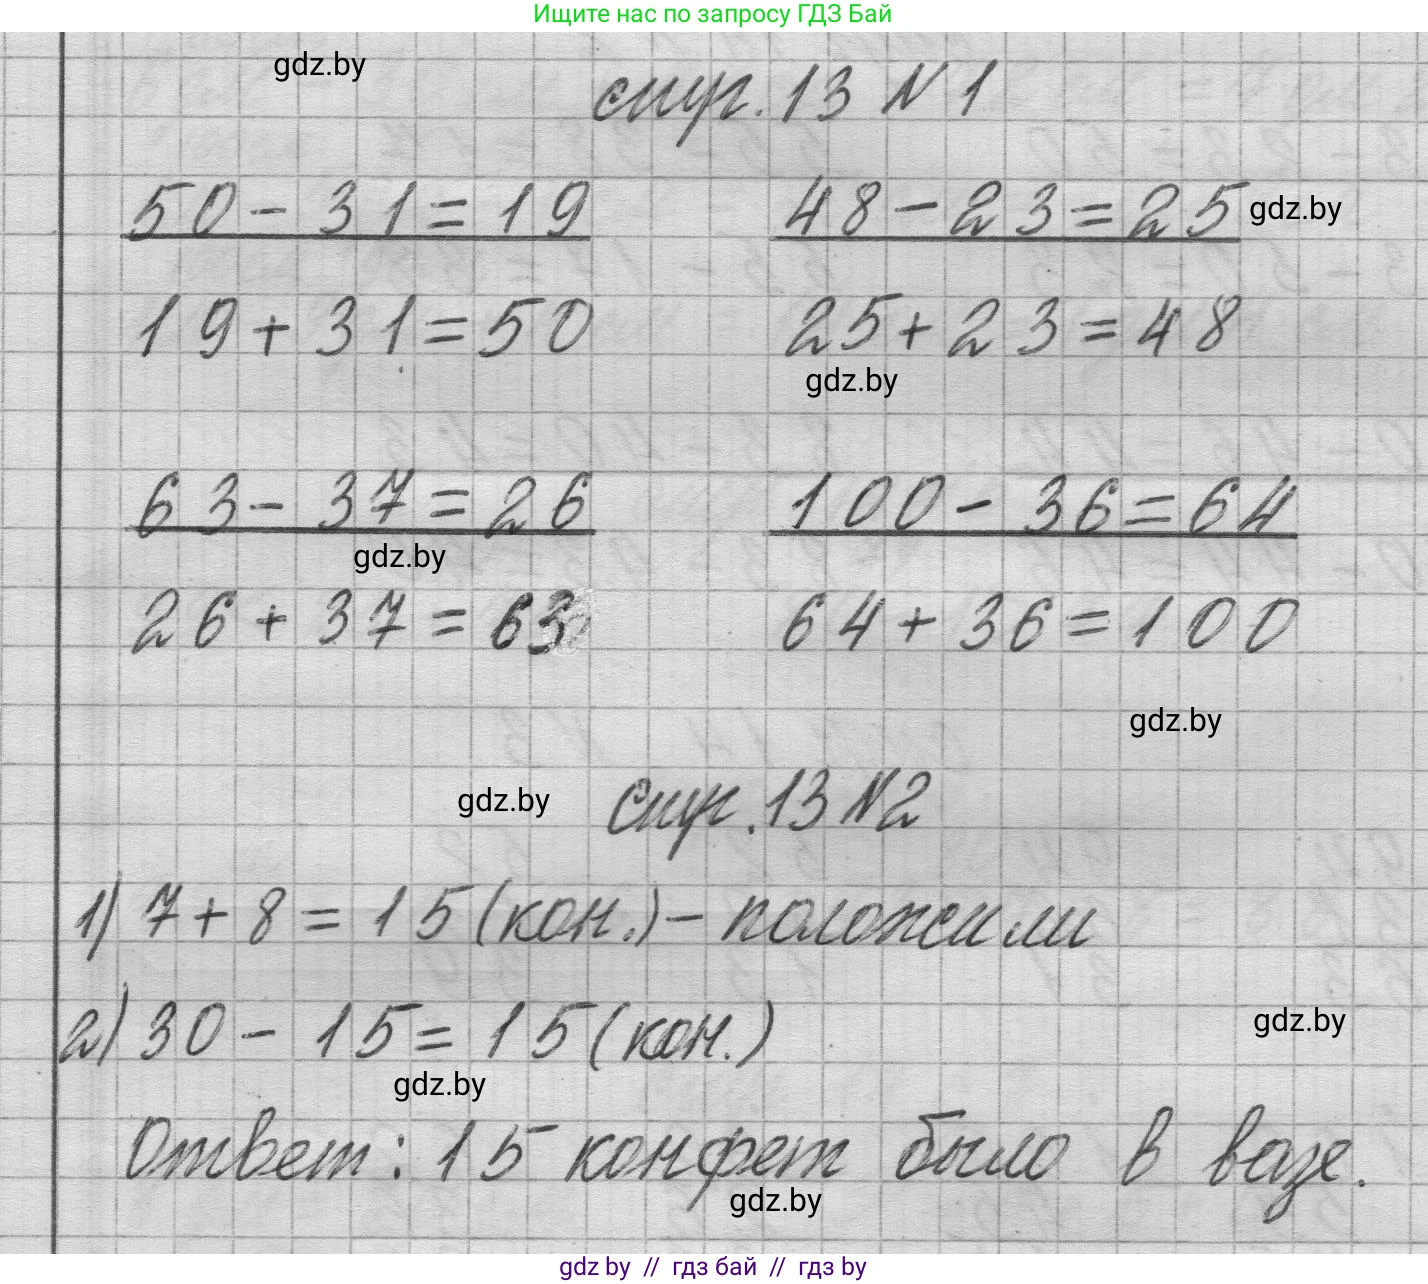 Ищите нас по запросу ГДЗ Бай
gdz.by
стр. 13 № 1
50 - 31 = 19
48 - 23 = 25
gdz.by
19 + 31 = 50
25 + 23 = 48
gdz.by
63 - 37 = 26
100 - 36 = 64
gdz.by
26 + 37 = 63
64 + 36 = 100
gdz.by
gdz.by
Стр. 13 №2
1) 7 + 8 = 15 (кон.) - положили
2) 30 - 15 = 15 (кон.)
gdz.by
gdz.by
Ответ: 15 конфет было в вазе.
gdz.by
gdz.by // гдз бай // гдз by